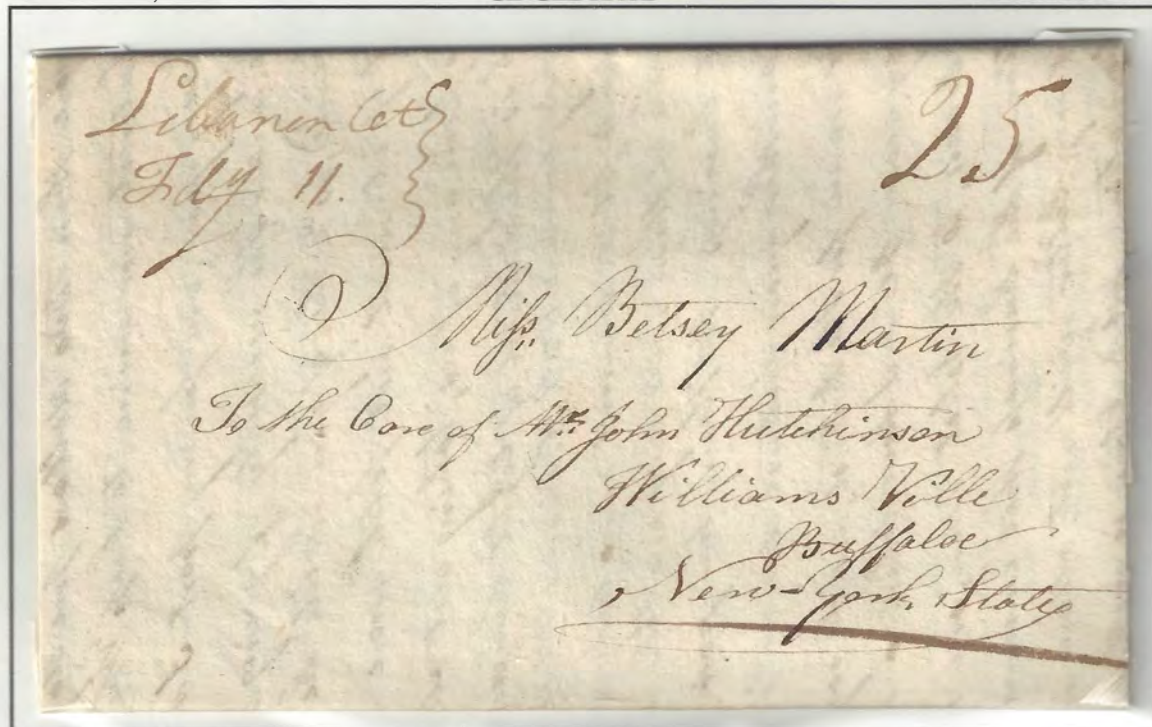 Lebanon Ct
Feby 11.
25
Miſs Betsey Martin
To the Care of Mr John Hutchinson
Williams Ville
Buffaloe
New-York State